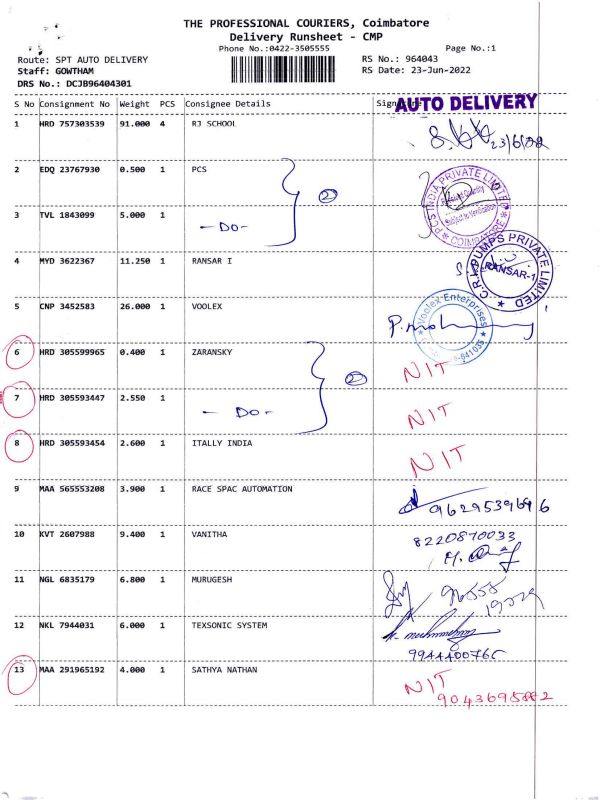 THE PROFESSIONAL COURIERS, Coimbatore
Delivery Runsheet - CMP
Phone No.:0422-3505555
Page No.:1
Route: SPT AUTO DELIVERY
RS No.: 964043
Staff: GOWTHAM
RS Date: 23-Jun-2022
DRS No.: DCJB96404301
S No Consignment No Weight PCS Consignee Details
AUTO DELIVERY
1 HRD 757303539 91.000 4 RJ SCHOOL
23/6/22
2 EDQ 23767930 0.500 1 PCS
2
PCS INDIA PRIVATE LIMITED
Subject to Verification
COIMBATORE
3 TVL 1843099 5.000 1 - DO -
4 MYD 3622367 11.250 1 RANSAR I
C.R.I. PUMPS PRIVATE LIMITED
RANSAR-1
5 CNP 3452583 26.000 1 VOOLEX
Voolex Enterprises
6 HRD 305599965 0.400 1 ZARANSKY
2
NIT
7 HRD 305593447 2.550 1 - DO - NIT
8 HRD 305593454 2.600 1 ITALLY INDIA NIT
9 MAA 565553208 3.900 1 RACE SPAC AUTOMATION
10 KVT 2607988 9.400 1 VANITHA 8220870033
11 NGL 6835179 6.800 1 MURUGESH
12 NKL 7944031 6.000 1 TEXSONIC SYSTEM
13 MAA 291965192 4.000 1 SATHYA NATHAN NIT